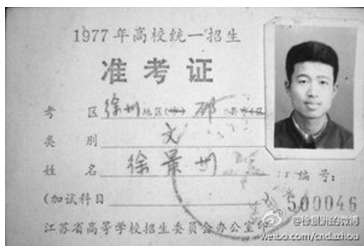 1977年高校统一招生
准考证
考 区 徐州地区(市) 邳 县(市)区
类 别 文
姓 名 徐景州
编号:
(加试科目) 500046
江苏省高等学校招生委员会办公室印
@徐景洲的微博
weibo.com/cndazhou